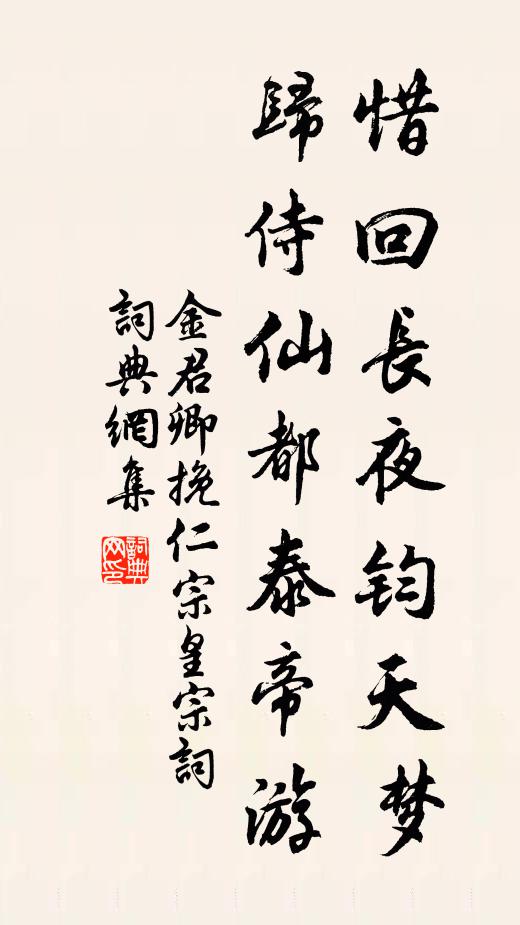 惜回長夜鈞天梦
歸侍仙都泰帝游
金君卿挽仁宗皇宗詞
詞典網集
詞典
网印